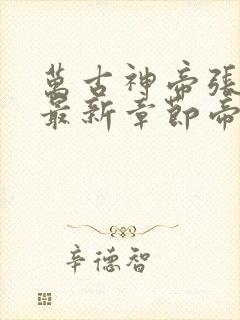 萬古神帝張
最新章節帝
辛德智